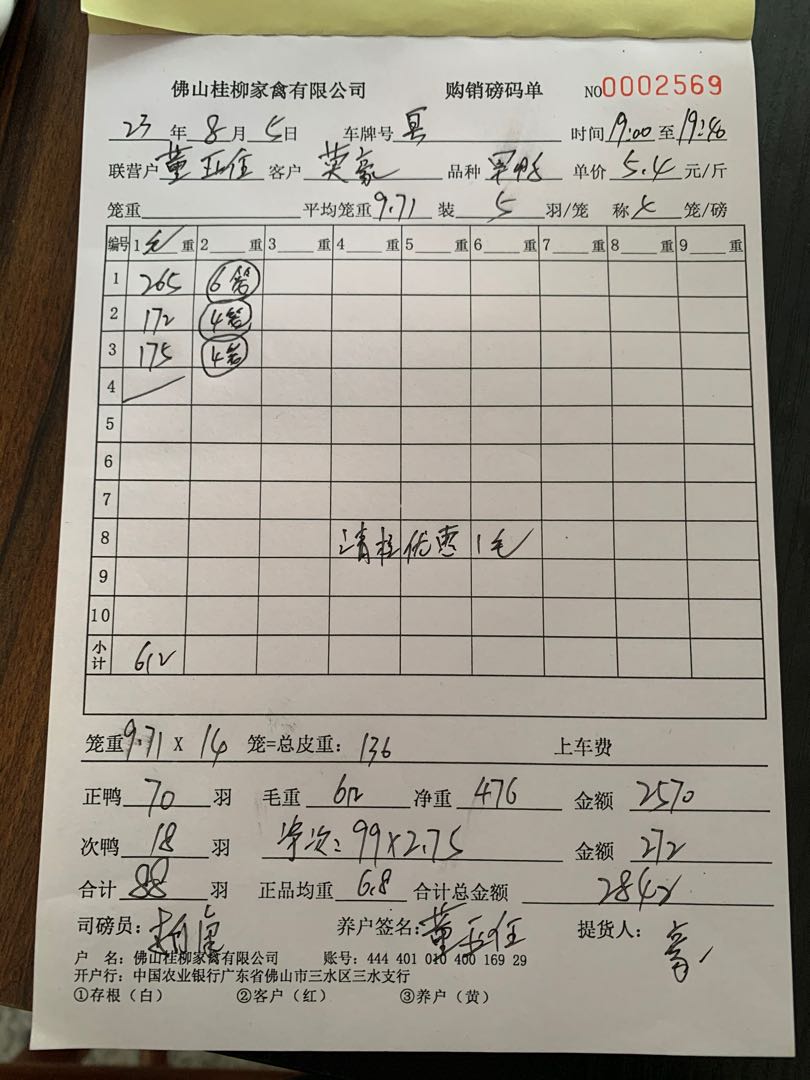 佛山桂柳家禽有限公司 购销磅码单 NO0002569
23年8月5日 车牌号 时间19:00至19:40
联营户董 客户英豪 品种 单价5.4元/斤
笼重 平均笼重9.71 装5羽/笼 称 笼/磅
编号 1毛重 2重 3重 4重 5重 6重 7重 8重 9重
1 265 6笼
2 172 4笼
3 175 4笼
4
5
6
7
8 清栏优惠1毛
9
10
小计 612
笼重9.71X14笼=总皮重:136 上车费
正鸭70羽 毛重612净重476 金额2570
次鸭18羽 净次:99×2.75 金额272
合计88羽 正品均重6.8合计总金额2842
司磅员: 养户签名:董 提货人:
户 名:佛山桂柳家禽有限公司 账号:444 401 010 400 169 29
开户行:中国农业银行广东省佛山市三水区三水支行
①存根(白) ②客户(红) ③养户(黄)